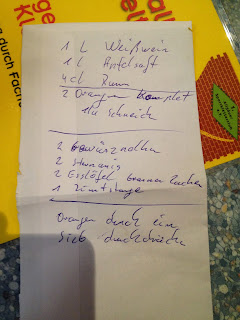 ge
Kl
alle
g durch Fäche
1 L Weißwein
1 L Apfelsaft
4 cl Rum
2 Orangen Komplet
schneiden
2 Gewürznelken
2 Sternanis
2 Esslöfel brauner Zucker
1 Zimtstange
Orangen durch ein
Sieb durchdrücken